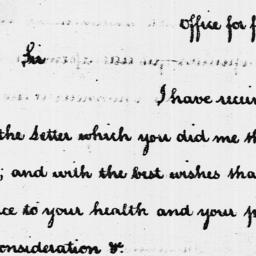 Office for f
Sir
I have recei
the Letter which you did me th
; and with the best wishes tha
ce to your health and your p
onsideration &c.